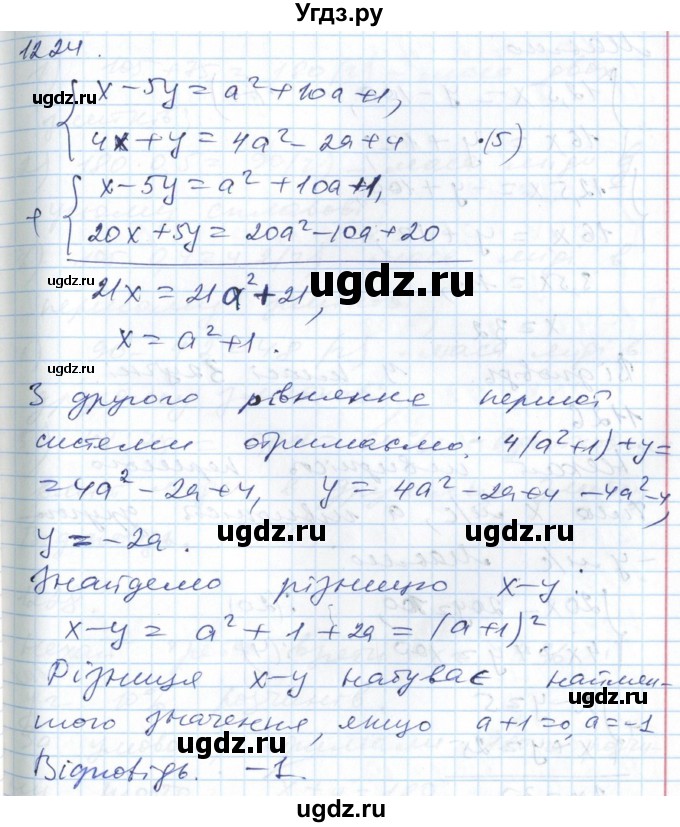 Угдз.ру
1224.
x - 5y = a² + 10a + 1,
ugdz.ru
4x + y = 4a² - 2a + 4 ·(5)
ugdz.ru
x - 5y = a² + 10a + 1,
+
20x + 5y = 20a² - 10a + 20
ugdz.ru
21x = 21a² + 21,
ugdz.ru
x = a² + 1.
З другого рівняння першої
ugdz.ru
системи отримаємо: 4(a²+1) + y =
= 4a² - 2a + 4, y = 4a² - 2a + 4 - 4a² - 4,
ugdz.ru
ugdz.ru
y = -2a.
Знайдемо різницю x - y:
x - y = a² + 1 + 2a = (a+1)².
ugdz.ru
Різниця x - y набуває наймен-
ugdz.ru
шого значення, якщо a + 1 = 0, a = -1
ugdz.ru
Відповідь. -1.
ugdz.ru
ugdz.ru